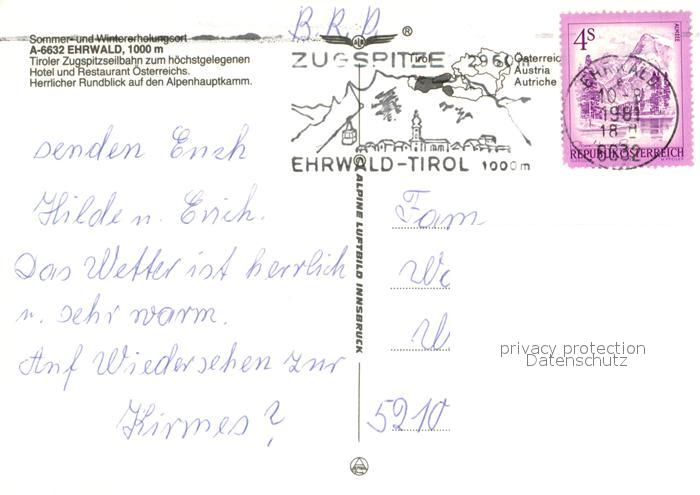 B.R.D.
Sommer- und Wintererholungsort
A-6632 EHRWALD, 1000 m
Tiroler Zugspitzseilbahn zum höchstgelegenen
Hotel und Restaurant Österreichs.
Herrlicher Rundblick auf den Alpenhauptkamm.
®
Tirol
Österreich
Austria
Autriche
ZUGSPITZE 2960m
EHRWALD-TIROL 1000m
4S
ALMSEE
REPUBLIK ÖSTERREICH
EHRWALD
10.-8
1981
18
6632
senden Euch
Hilde u. Erich.
Das Wetter ist herrlich
u. sehr warm.
Auf Wiedersehen zur
Kirmes?
ALPINE LUFTBILD INNSBRUCK
Fam
5210
privacy protection
Datenschutz